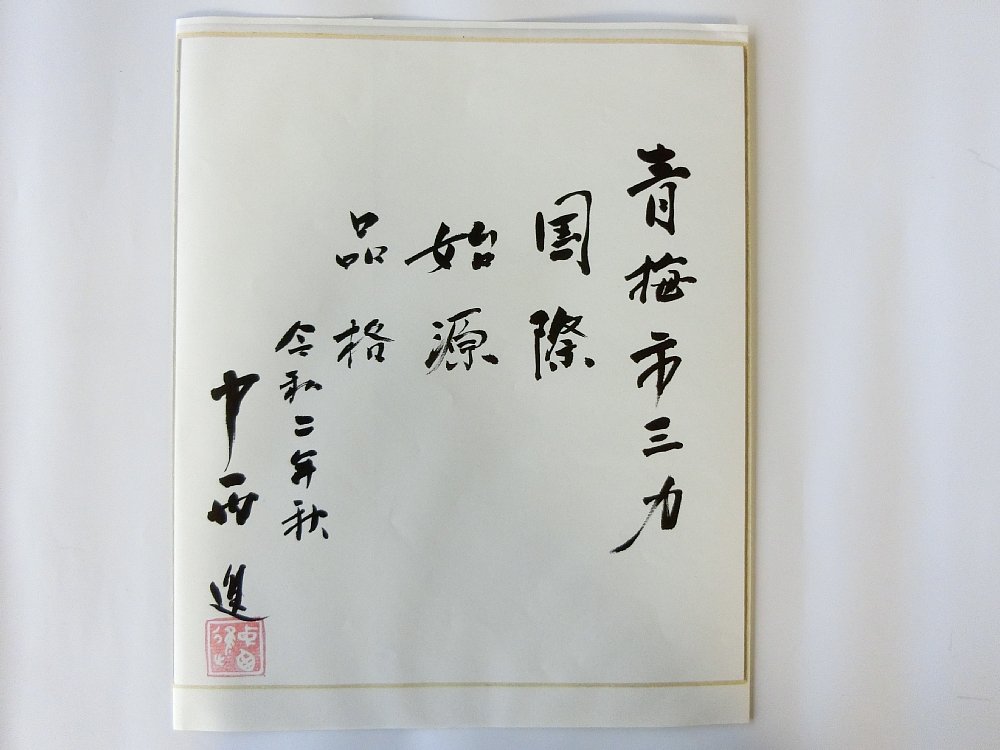 青梅市三力
国際
始源
品格
令和二年秋
中西進